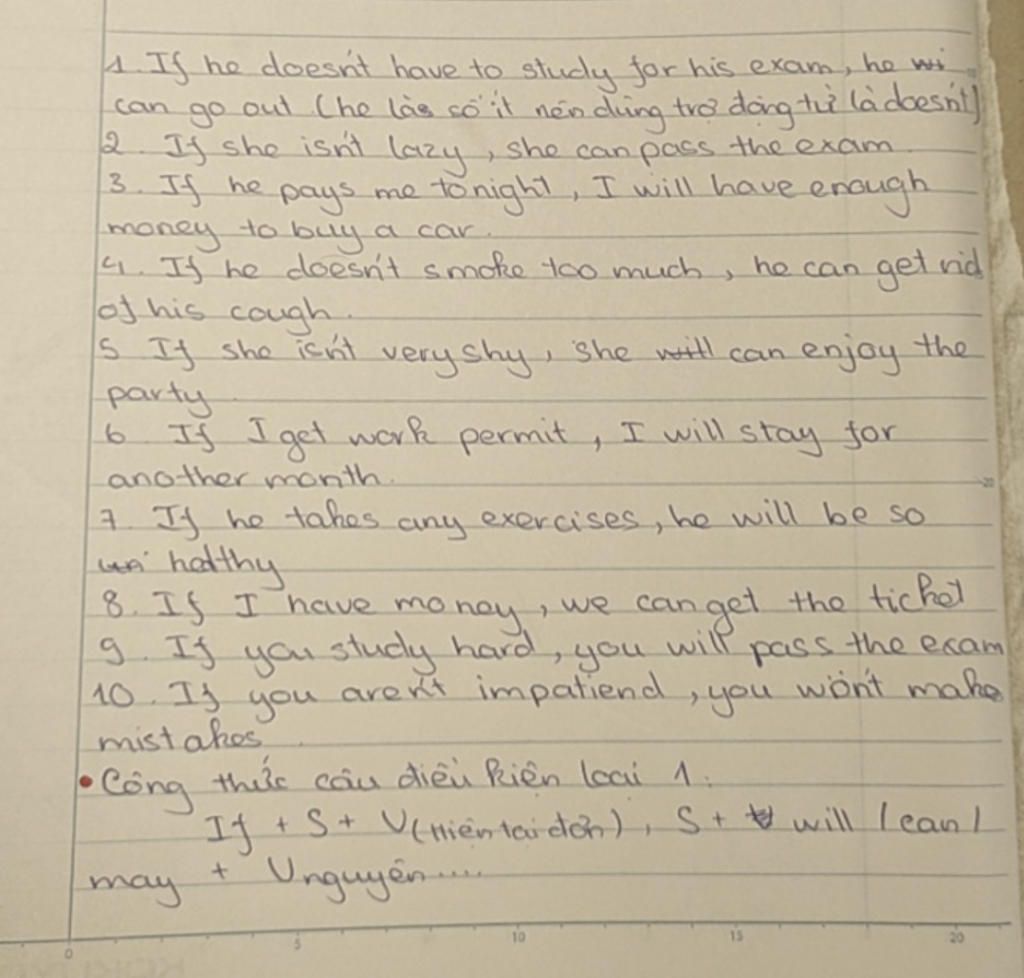 1. If he doesn't have to study for his exam, he wi
can go out (he là số ít nên dùng trợ động từ là doesn't)
2. If she isn't lazy, she can pass the exam.
3. If he pays me tonight, I will have enough
money to buy a car.
4. If he doesn't smoke too much, he can get rid
of his cough.
5 If she isn't very shy, she will can enjoy the
party
6 If I get work permit, I will stay for
another month.
7. If he takes any exercises, he will be so
un healthy
8. If I have money, we can get the ticket
9. If you study hard, you will pass the exam
10. If you aren't impatiend, you won't make
mistakes
• Công thức câu điều kiện loại 1:
If + S + V (Hiện tại đơn), S + will / can /
may + Vnguyên....
0 5 10 15 20
20